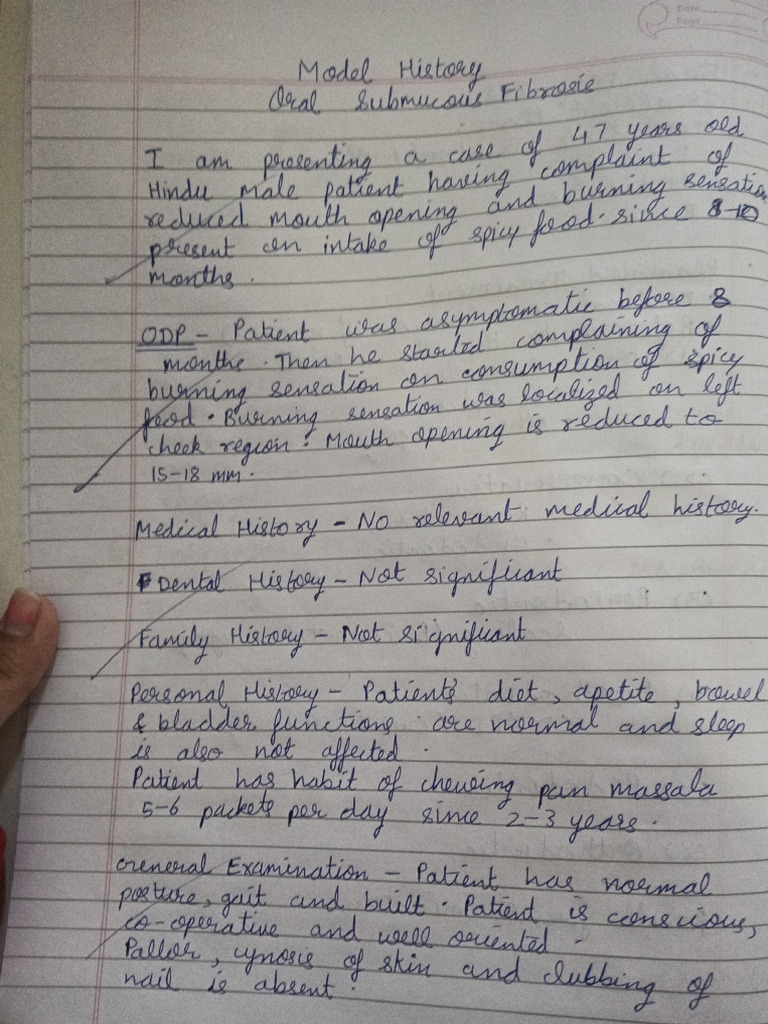 Date
Page
Model History
Oral Submucous Fibrosis
I am presenting a case of 47 years old
Hindu male patient having complaint of
reduced mouth opening and burning sensation
present on intake of spicy food. since 8-10
months.
ODP - Patient was asymptomatic before 8
months. Then he started complaining of
burning sensation on consumption of spicy
food. Burning sensation was localized on left
cheek region. Mouth opening is reduced to
15-18 mm.
Medical History - No relevant medical history.
Dental History - Not significant
Family History - Not significant
Personal History - Patient's diet, apetite, bowel
& bladder functions are normal and sleep
is also not affected.
Patient has habit of chewing pan massala
5-6 packets per day since 2-3 years.
General Examination - Patient has normal
posture, gait and built. Patient is conscious,
co-operative and well oriented -
Pallor, cynosis of skin and clubbing of
nail is absent.